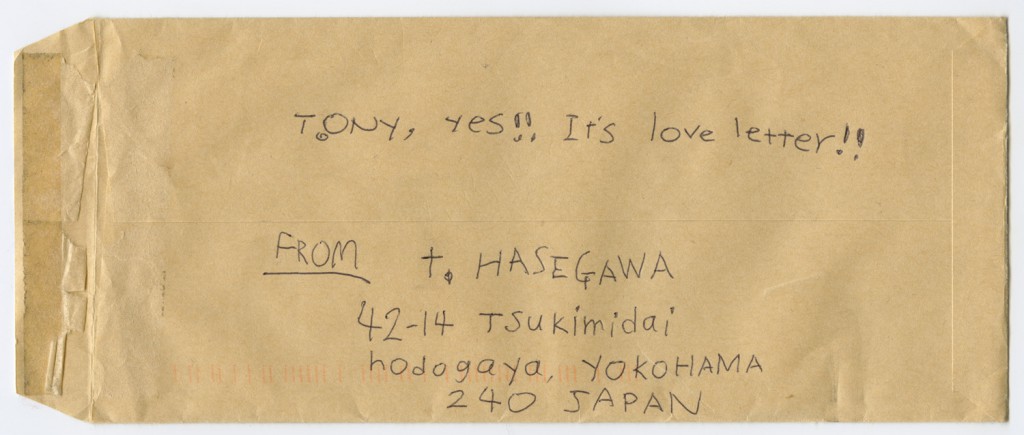 TONY, yes!! It's love letter!!
FROM t. HASEGAWA
42-14 Tsukimidai
hodogaya, YOKOHAMA
240 JAPAN